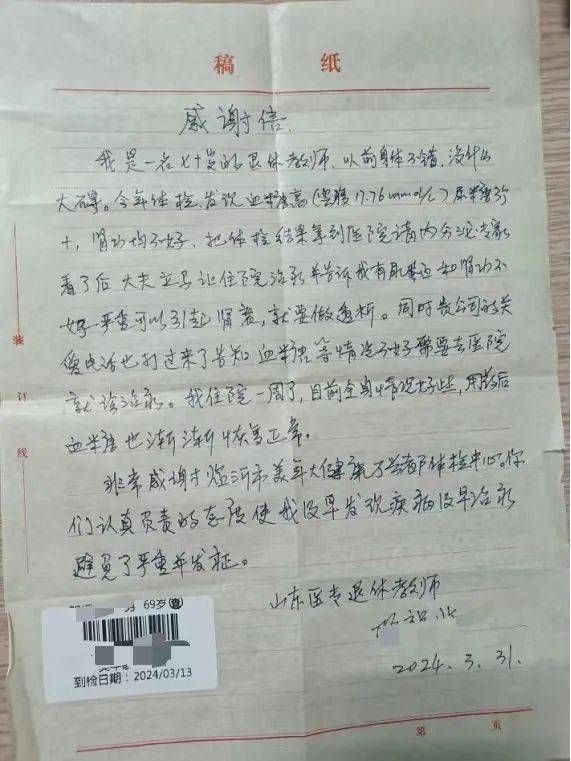 稿 纸
感谢信
我是一名七十岁的退休教师,以前身体不错,没什么
大碍。今年体检,发现血糖高(空腹17.76mmol/L)尿糖3个
十,肾功均不好,把体检结果拿到医院请内分泌专家
看了后大夫立马让住院治疗并告诉我有尿蛋白和肾功不
好严重可以引起肾衰,就要做透析。同时贵公司的关
爱电话也打过来了告知血糖等情况不好需要去医院
就诊治疗。我住院一周了,目前全身情况好些,用药后
血糖也渐渐恢复正常。
非常感谢临沂市美年大健康 体检中心。你
们认真负责的态度使我及早发现疾病及早治疗
避免了严重并发症。
山东医专退休教师
2024.3.31.
男 69岁 查
到检日期:2024/03/13
装
订
线
第 页